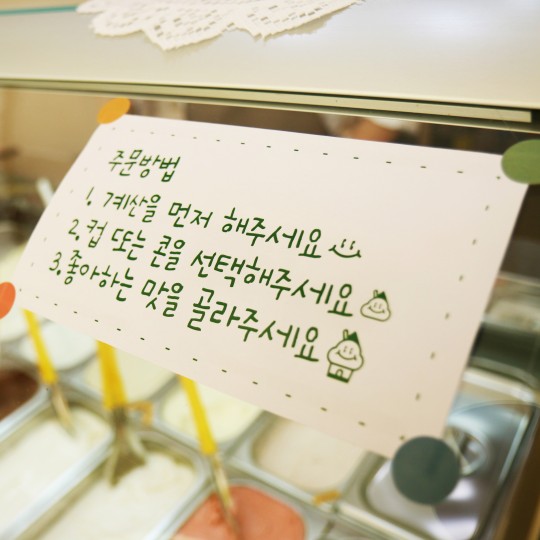 주문방법
1. 계산을 먼저 해주세요
2. 컵 또는 콘을 선택해주세요
3. 좋아하는 맛을 골라주세요